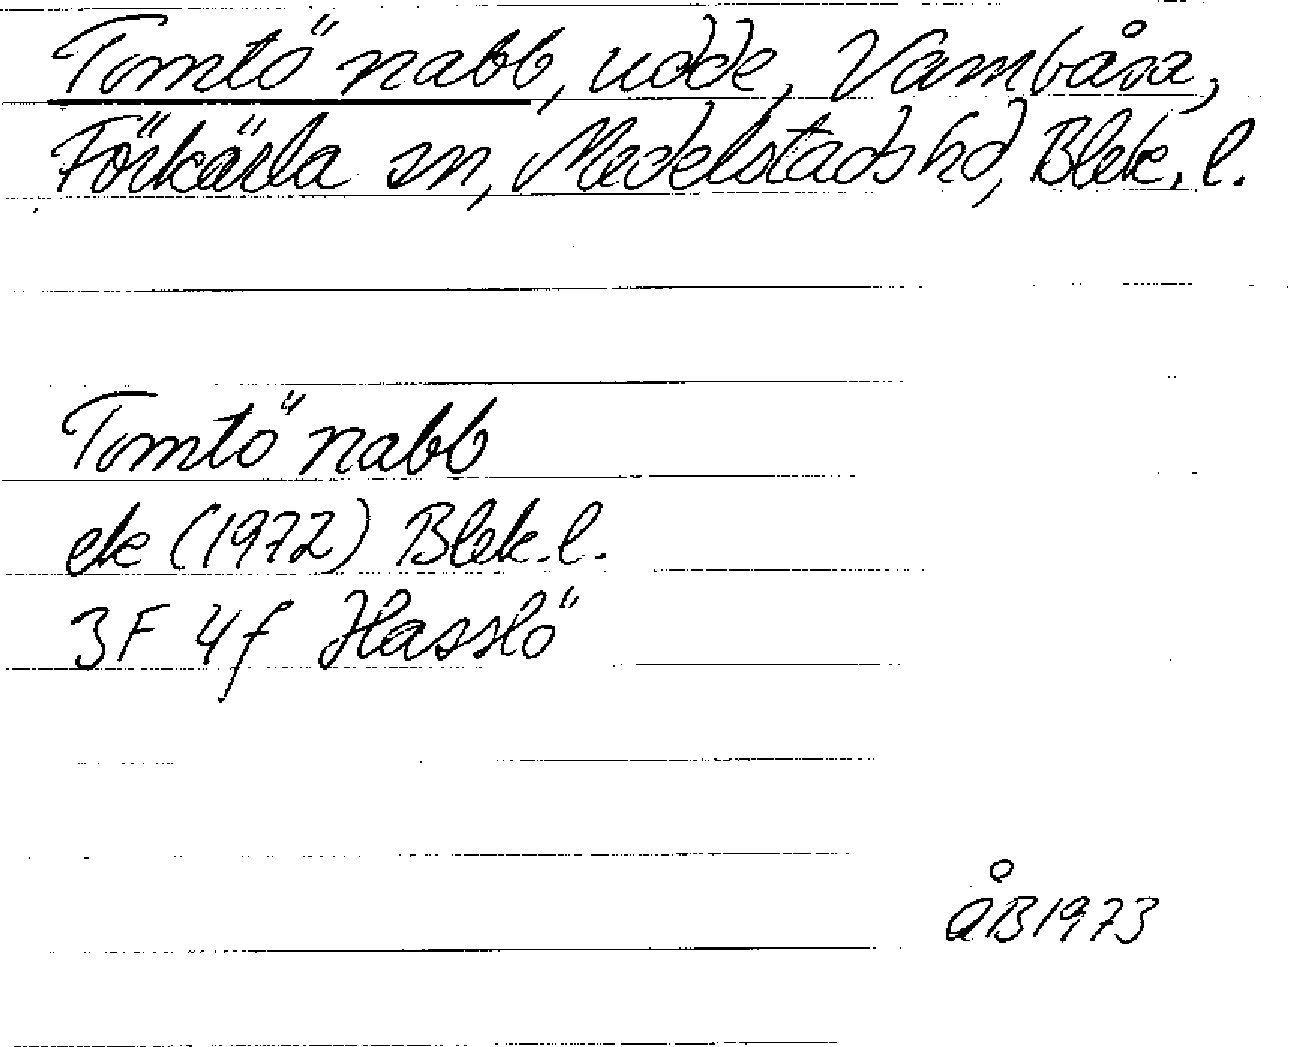 Tomtö nabb, udde, Vambåsa,
Förkärla sn, Medelstads hd, Blek. l.
Tomtö nabb
ek (1972) Blek. l.
3F 4f Hasslö
ÅB 1973